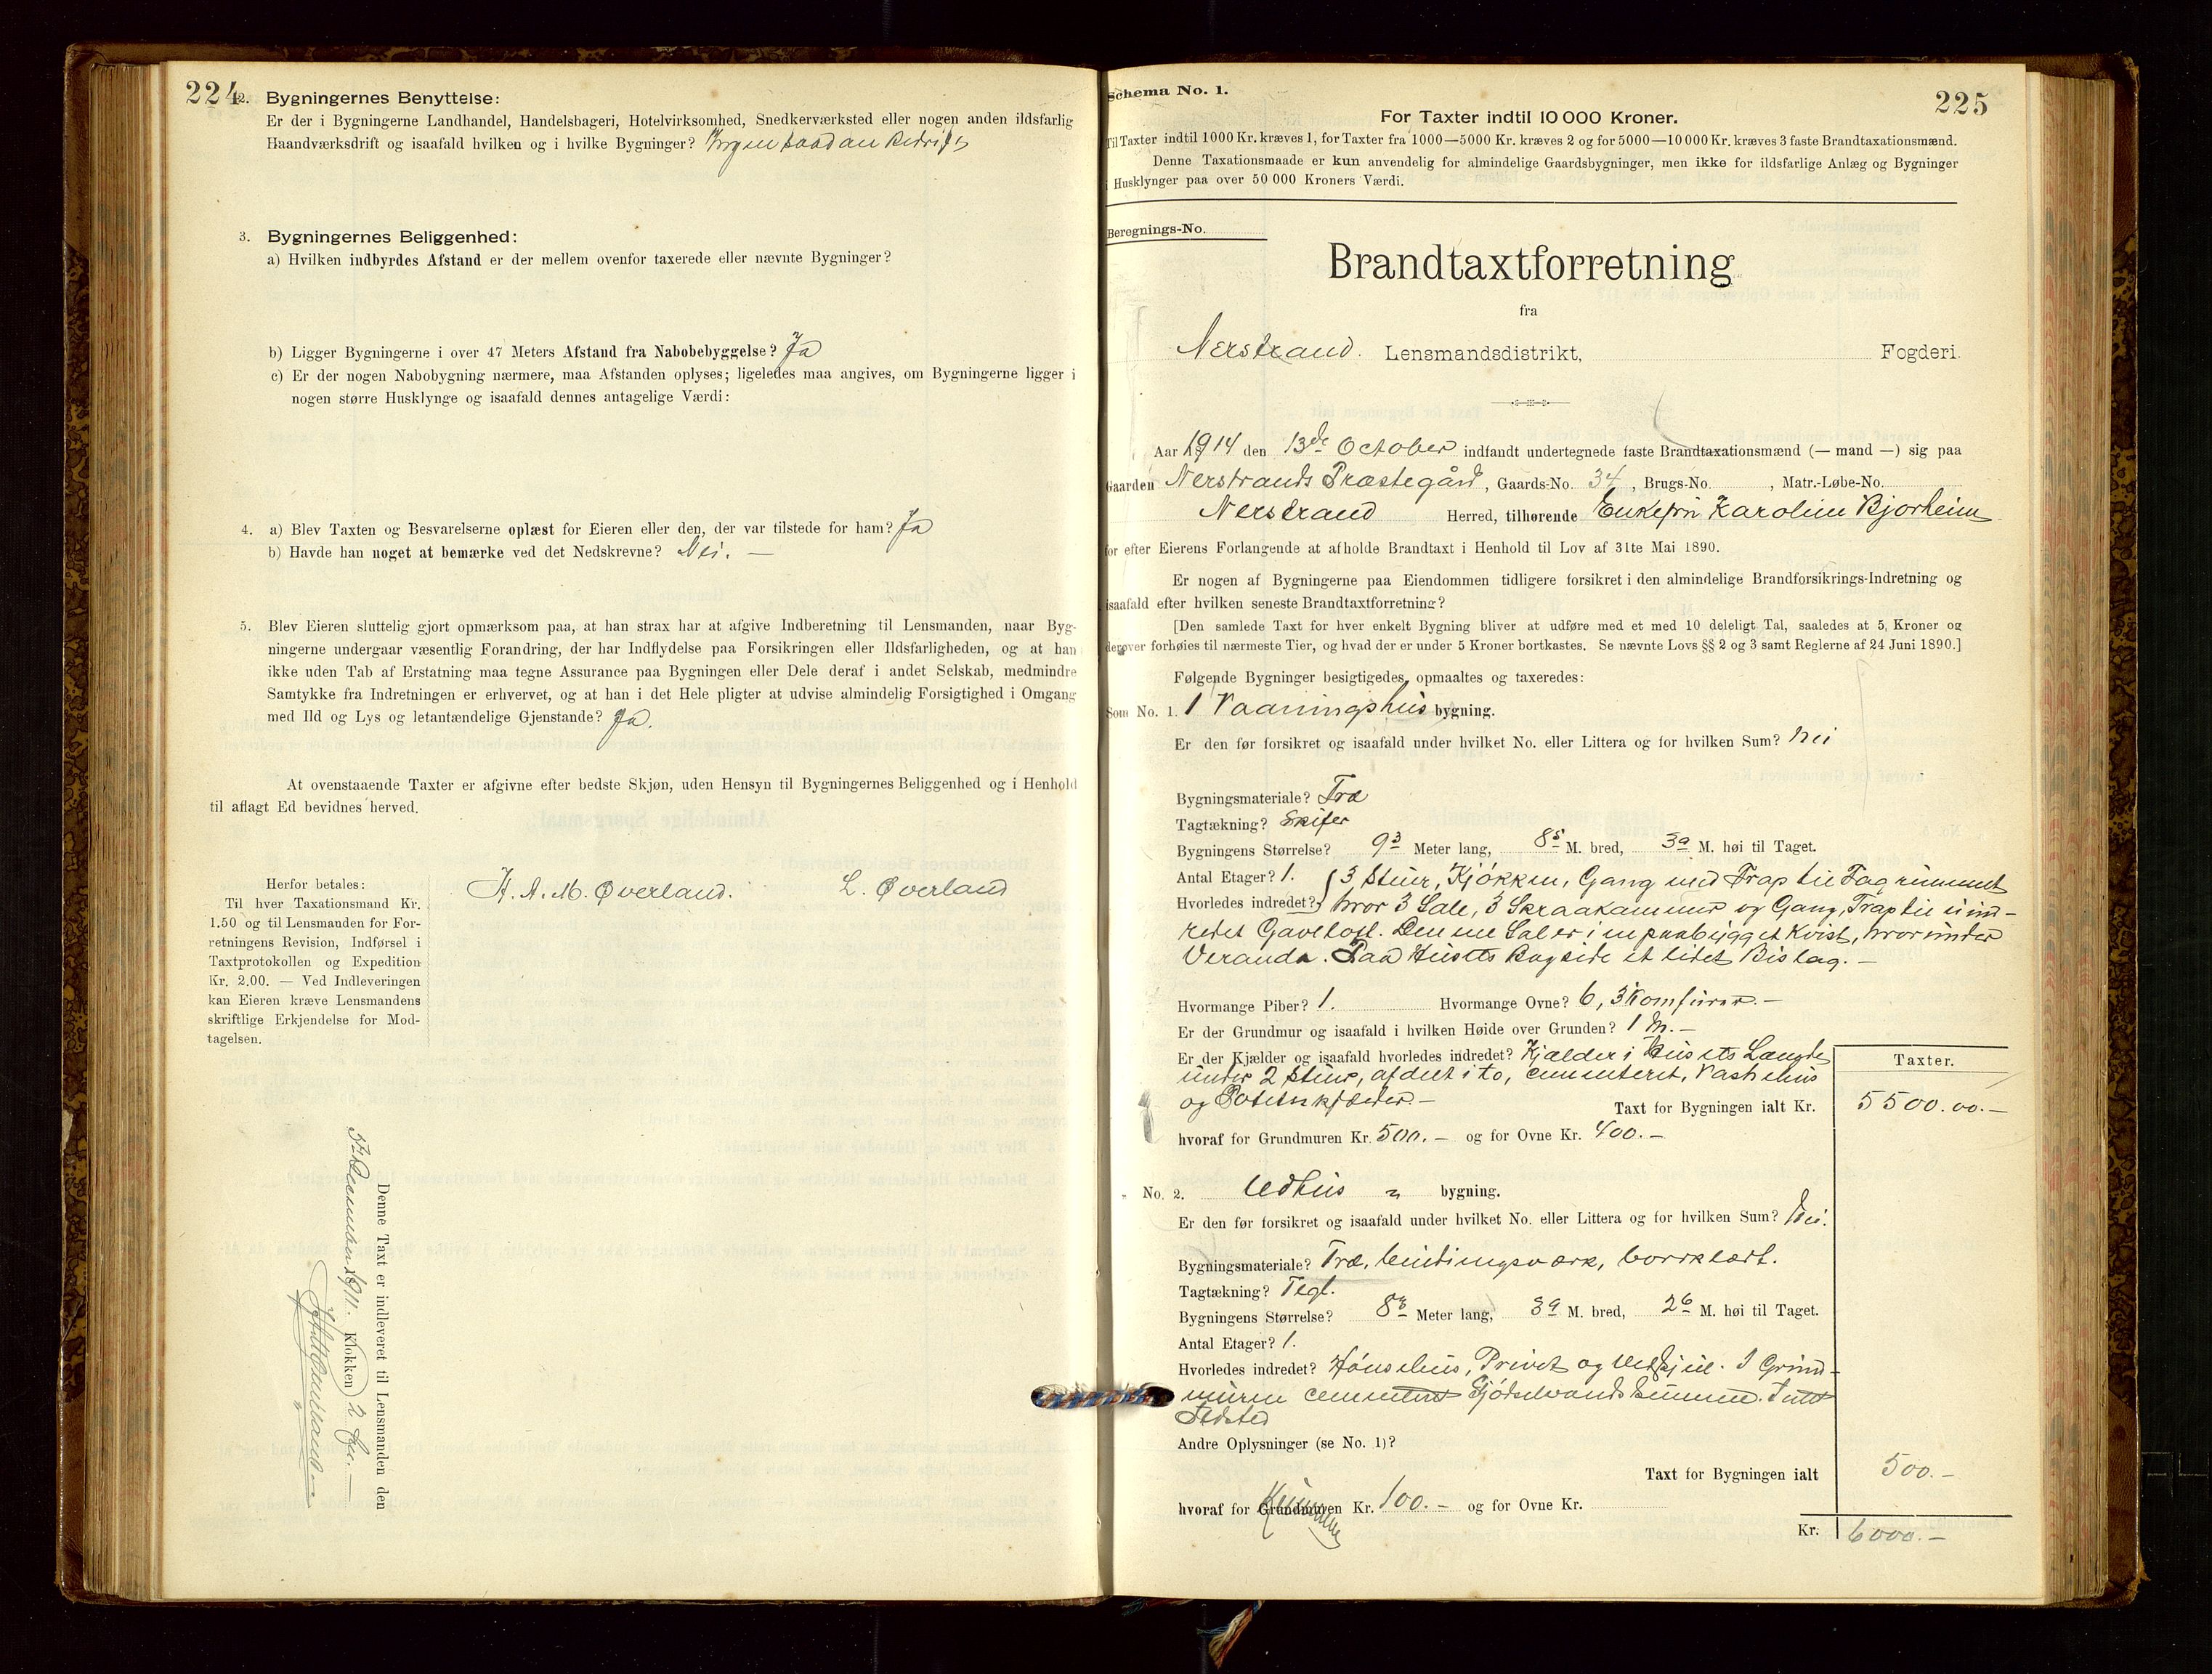 224
2. Bygningernes Benyttelse:
Er der i Bygningerne Landhandel, Handelsbageri, Hotelvirksomhed, Snedkerværksted eller nogen anden ildsfarlig
Haandværksdrift og isaafald hvilken og i hvilke Bygninger? Ingen saadan Bedrift
3. Bygningernes Beliggenhed:
a) Hvilken indbyrdes Afstand er der mellem ovenfor taxerede eller nævnte Bygninger?
b) Ligger Bygningerne i over 47 Meters Afstand fra Nabobebyggelse? Ja
c) Er der nogen Nabobygning nærmere, maa Afstanden oplyses; ligeledes maa angives, om Bygningerne ligger i
nogen større Husklynge og isaafald dennes antagelige Værdi:
4. a) Blev Taxten og Besvarelserne oplæst for Eieren eller den, der var tilstede for ham? Ja
b) Havde han noget at bemærke ved det Nedskrevne? Nei. —
5. Blev Eieren sluttelig gjort opmærksom paa, at han strax har at afgive Indberetning til Lensmanden, naar Byg-
ningerne undergaar væsentlig Forandring, der har Indflydelse paa Forsikringen eller Ildsfarligheden, og at han
ikke uden Tab af Erstatning maa tegne Assurance paa Bygningen eller Dele deraf i andet Selskab, medmindre
Samtykke fra Indretningen er erhvervet, og at han i det Hele pligter at udvise almindelig Forsigtighed i Omgang
med Ild og Lys og letantændelige Gjenstande? Ja.
At ovenstaaende Taxter er afgivne efter bedste Skjøn, uden Hensyn til Bygningernes Beliggenhed og i Henhold
til aflagt Ed bevidnes herved.
H. A. M. Øverland. L. Øverland
Herfor betales:
Til hver Taxationsmand Kr.
1.50 og til Lensmanden for For-
retningens Revision, Indførsel i
Taxtprotokollen og Expedition
Kr. 2.00. — Ved Indleveringen
kan Eieren kræve Lensmandens
skriftlige Erkjendelse for Mod-
tagelsen.
Denne Taxt er indleveret til Lensmanden den
December 1911. Klokken 2
225
Schema No. 1.
For Taxter indtil 10 000 Kroner.
Til Taxter indtil 1000 Kr. kræves 1, for Taxter fra 1000—5000 Kr. kræves 2 og for 5000—10000 Kr. kræves 3 faste Brandtaxationsmænd.
Denne Taxationsmaade er kun anvendelig for almindelige Gaardsbygninger, men ikke for ildsfarlige Anlæg og Bygninger
i Husklynger paa over 50 000 Kroners Værdi.
Beregnings-No.
Brandtaxtforretning
fra
Nerstrand. Lensmandsdistrikt, Fogderi.
Aar 1914 den 13de October indfandt undertegnede faste Brandtaxationsmænd (— mand —) sig paa
Gaarden Nerstrands Præstegård, Gaards-No. 34, Brugs-No. , Matr.-Løbe-No.
Nerstrand Herred, tilhørende Enkefru Karoline Bjorheim
for efter Eierens Forlangende at afholde Brandtaxt i Henhold til Lov af 31te Mai 1890.
Er nogen af Bygningerne paa Eiendommen tidligere forsikret i den almindelige Brandforsikrings-Indretning og
isaafald efter hvilken seneste Brandtaxtforretning?
[Den samlede Taxt for hver enkelt Bygning bliver at udføre med et med 10 deleligt Tal, saaledes at 5 Kroner og
derover forhøies til nærmeste Tier, og hvad der er under 5 Kroner bortkastes. Se nævnte Lovs §§ 2 og 3 samt Reglerne af 24 Juni 1890.]
Følgende Bygninger besigtigedes, opmaaltes og taxeredes:
Som No. 1. 1 Vaaningshus bygning.
Er den før forsikret og isaafald under hvilket No. eller Littera og for hvilken Sum? Nei
Bygningsmateriale? Træ
Tagtækning? Skifer
Bygningens Størrelse? 9 3 Meter lang, 8 5 M. bred, 3 9 M. høi til Taget.
Antal Etager? 1. 3 Stuer, Kjökken, Gang med Trap til Tagrummet
Hvorledes indredet? hvor 3 Sale, 3 Skraakammer og Gang, Trap til uind-
redet Gavlloft. Den ene Sal er i en paabygget Kvist, hvorunder
Veranda. Paa Husets Bagside et lidet Bislag. —
Hvormange Piber? 1. Hvormange Ovne? 6, 3 Komfurer. —
Er der Grundmur og isaafald i hvilken Høide over Grunden? 1 M. —
Er der Kjælder og isaafald hvorledes indredet? Kjælder i Husets Længde
under 2 Stuer, afdelt i to, cementeret, Vaskehus
og Potetkjælder. —
Taxter.
Taxt for Bygningen ialt Kr. 5500.00. —
hvoraf for Grundmuren Kr. 500. — og for Ovne Kr. 400. —
" No. 2. Udhus bygning.
Er den før forsikret og isaafald under hvilket No. eller Littera og for hvilken Sum? Nei.
Bygningsmateriale? Træ, bindingsværk, bordklædt.
Tagtækning? Tegl.
Bygningens Størrelse? 8 Meter lang, 3 9 M. bred, 2 6 M. høi til Taget.
Antal Etager? 1.
Hvorledes indredet? Hönsehus, Privet og Vedskjul. I Grund-
muren cementeret Gjödselvandskumme. Intet
Ildsted
Andre Oplysninger (se No. 1)?
Taxt for Bygningen ialt 500. —
hvoraf for Grundmuren Kr. 100. — og for Ovne Kr.
Kummen
Kr. 6000. —